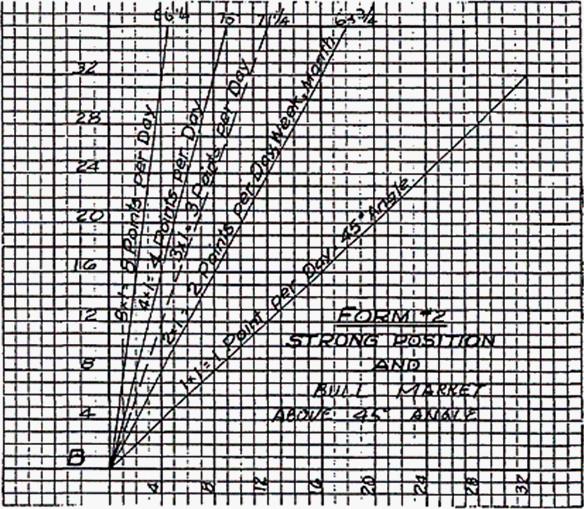 75
71 1/4
63 3/4
32
28
24
20
16
12
8
4
B
8x1 = 8 Points per Day
4x1 = 4 Points per Day
3x1 = 3 Points per Day
2x1 = 2 Points per Day, Week, Month
1x1 = 1 Point per Day. 45° Angle
FORM #2
STRONG POSITION
AND
BULL MARKET
ABOVE 45 ANGLE
4
8
12
16
20
24
28
32